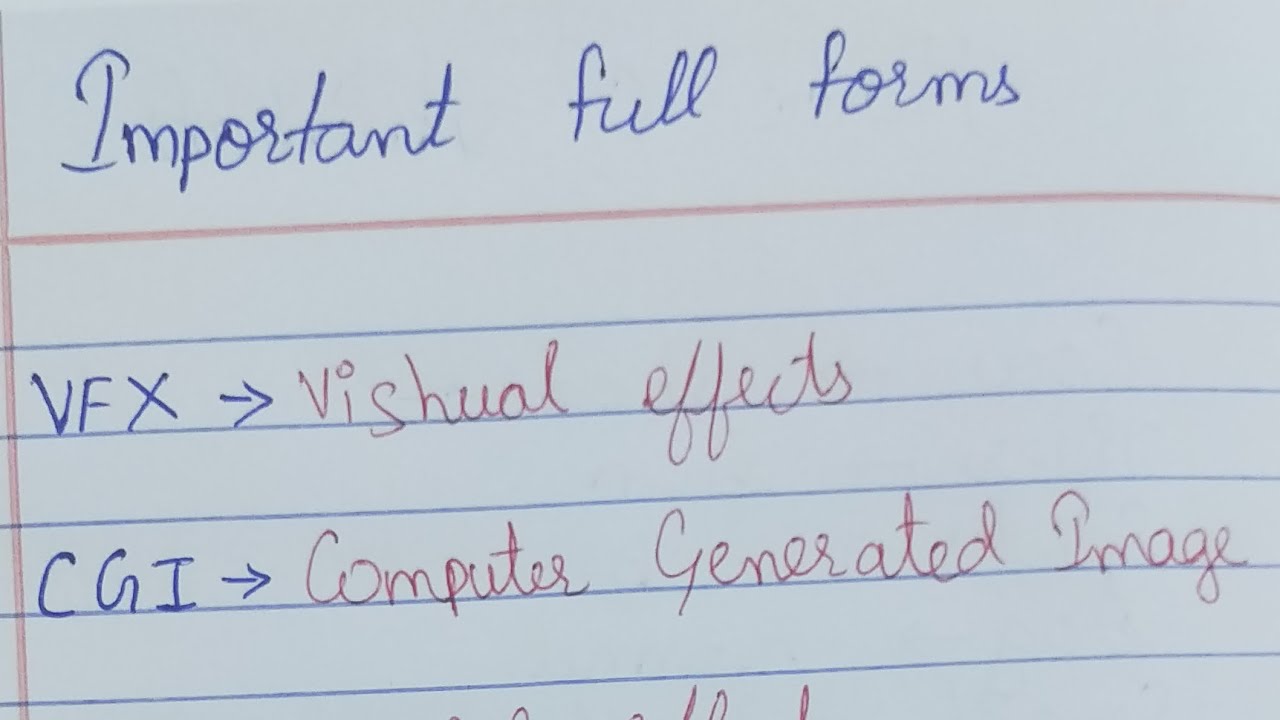 Important full forms
VFX → Vishual effects
CGI → Computer Generated Image